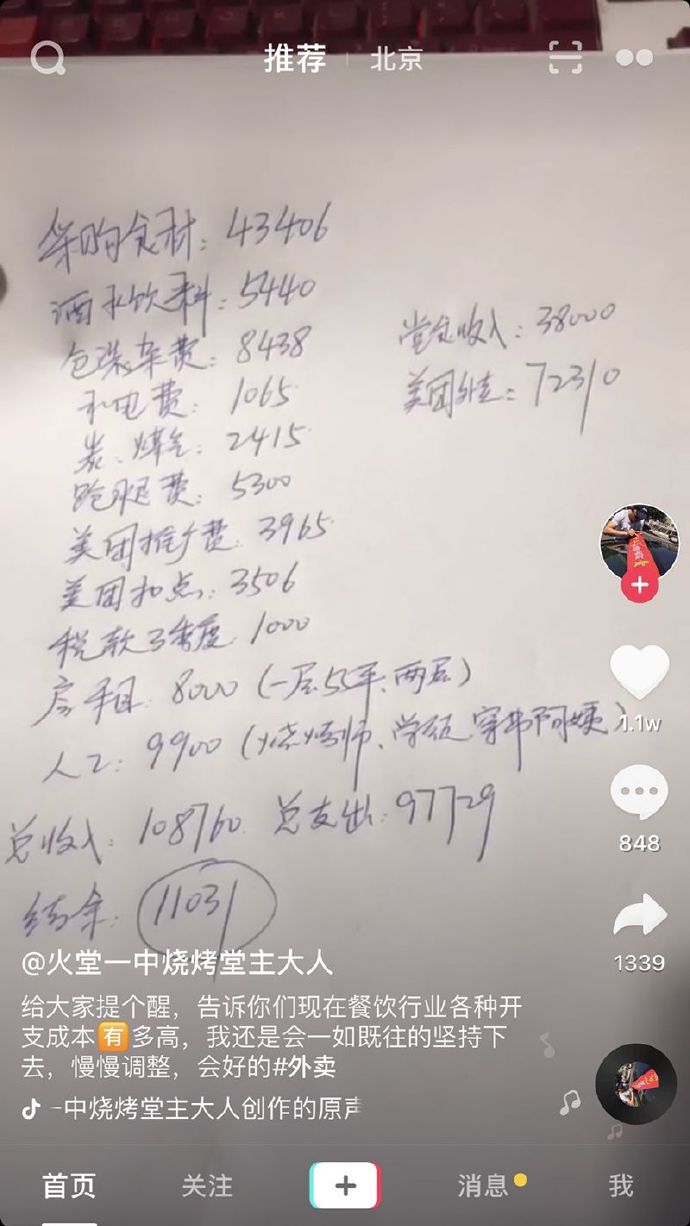 推荐
北京
采购食材：43406
酒水饮料：5440
包装杂费：8438
水电费：1065
炭、煤气：2415
跑腿费：5300
美团推广费：3965
美团扣点：3506
税款3季度：1000
房租：8000（一层55平、两层）
人工：9900（烧烤师、学徒、穿串阿姨）
堂食收入：38000
美团外卖：72310
总收入：108760 总支出：97729
结余：11031
1.1w
848
1339
@火堂一中烧烤堂主大人
给大家提个醒，告诉你们现在餐饮行业各种开
支成本🈶多高，我还是会一如既往的坚持下
去，慢慢调整，会好的#外卖
一中烧烤堂主大人创作的原声
首页
关注
消息
我